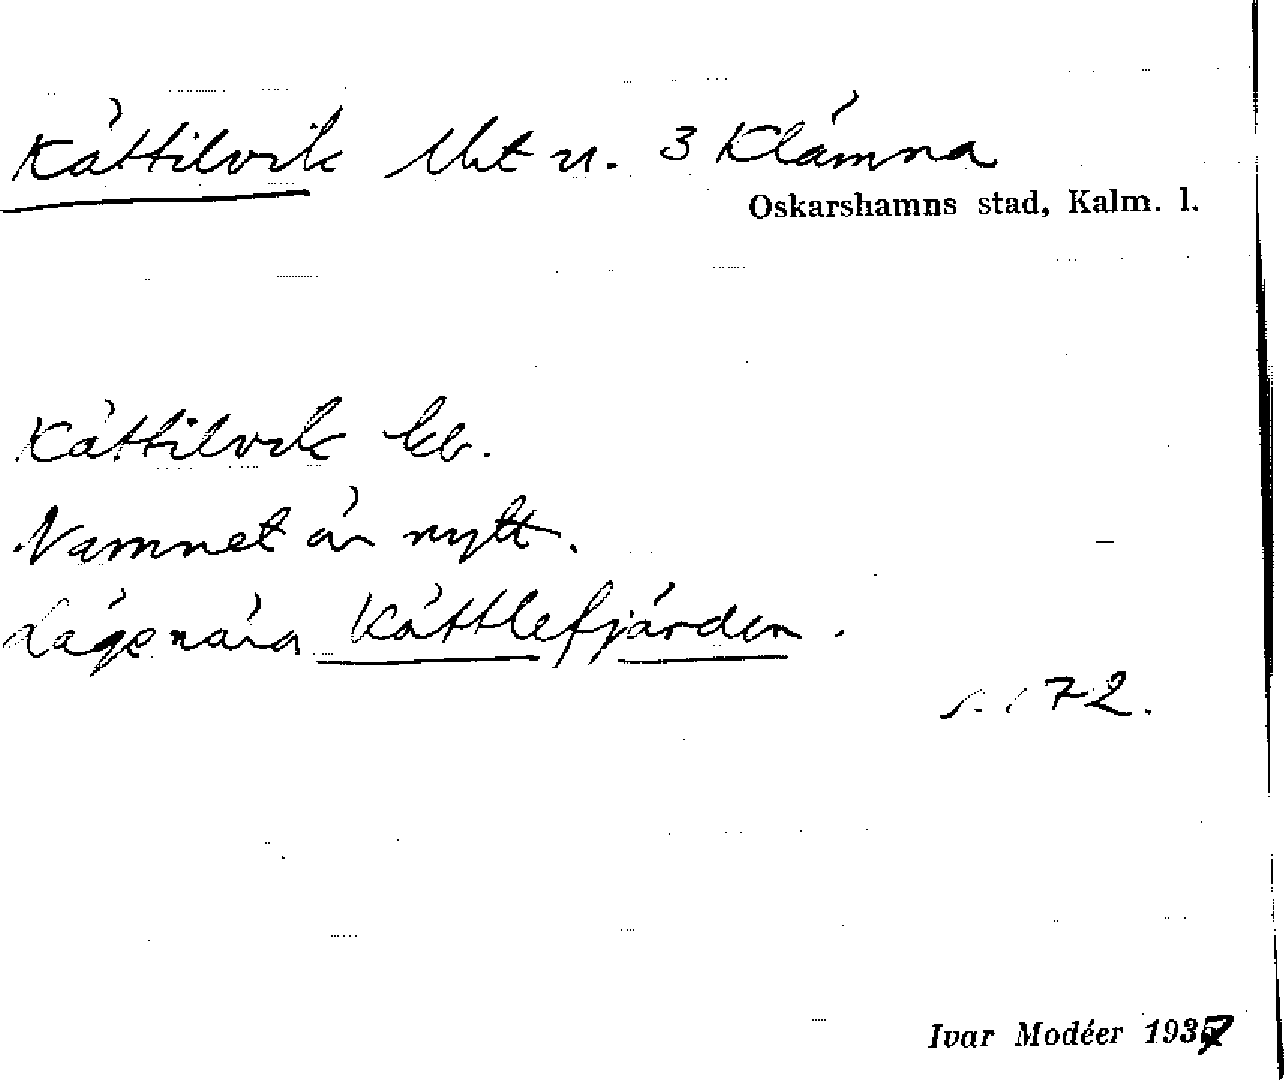 Kättilvik lht n. 3 Klämna
Oskarshamns stad, Kalm. l.
Kättilvik
Namnet är nytt.
Läge nära Kättlefjärden.
s. 172.
Ivar Modéer 1937